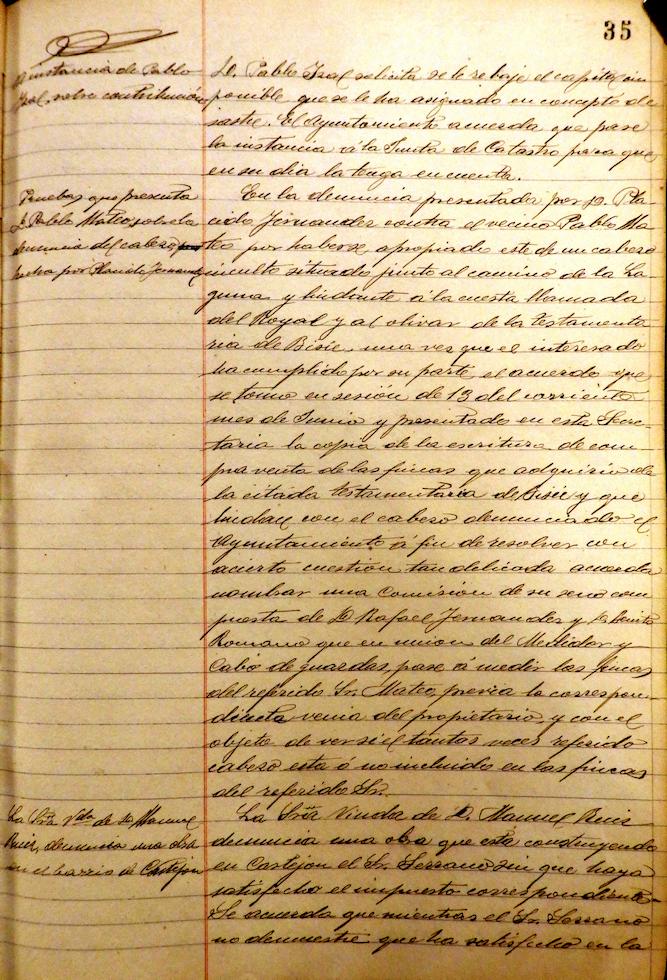 35
A instancia de Pablo
Isal, sobre contribución
D. Pablo Isal solicita se le rebaje el capital im
ponible que se le ha asignado en concepto de
sastre. El Ayuntamiento acuerda que pase
la instancia á la Junta de Catastro para que
en su dia la tenga en cuenta.
Pruebas que presenta
D. Pablo Mateo, sobre la
denuncia del cabezo
hecha por Placido Jernandez
En la denuncia presentada por D. Pla
cido Jernandez contra el vecino Pablo Ma
teo por haberse apropiado este de un cabezo
inculto situado junto al camino de la La
guna y lindante á la cuesta llamada
del Royal y al olivar de la testamenta
ria de Bisie, una vez que el interesado
ha cumplido por su parte el acuerdo que
se tomo en sesión de 13 del corriente
mes de Junio y presentado en esta Secre-
taria la copia de la escritura de com
pra venta de las fincas que adquirio de
la citada testamentaria de Bisie y que
lindan con el cabezo denunciado el
Ayuntamiento á fin de resolver con
acierto cuestión tan delicada acuerda
nombrar una Comisión de su seno com
puesta de D Rafael Jernandez y D. Benito
Romano que en union del Medidor y
Cabo de guardas, pase á medir las fincas
del referido Sr. Mateo, previa la correspon-
diente venia del propietario, y con el
objeto de ver si el tantas veces referido
cabezo esta ó no incluido en las fincas
del referido Sr.
La Sra Vda de D Manuel
Ruiz, denuncia una obra
en el barrio de Castejon
La Sra Viuda de D. Manuel Ruiz
denuncia una obra que esta construyendo
en Castejon el Sr. Serrano sin que haya
satisfecho el impuesto correspondiente.
Se acuerda que mientras el Sr. Serrano
no demuestre que ha satisfecho en la